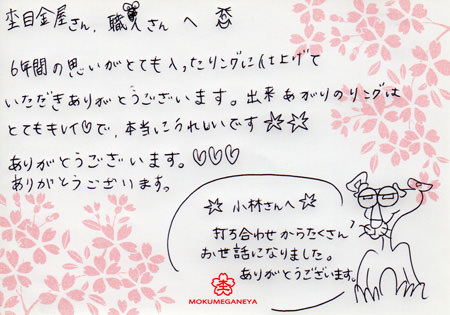 杢目金屋さん、職人さんへ
6年間の思いがとても入ったリングに仕上げて
いただきありがとうございます。出来あがりのリングは
とてもキレイ♡で、本当にうれしいです☆☆
ありがとうございます。♡♡♡
ありがとうございます。
☆小林さんへ☆
打ち合わせからたくさん
おせ話になりました。
ありがとうございます。
MOKUMEGANEYA